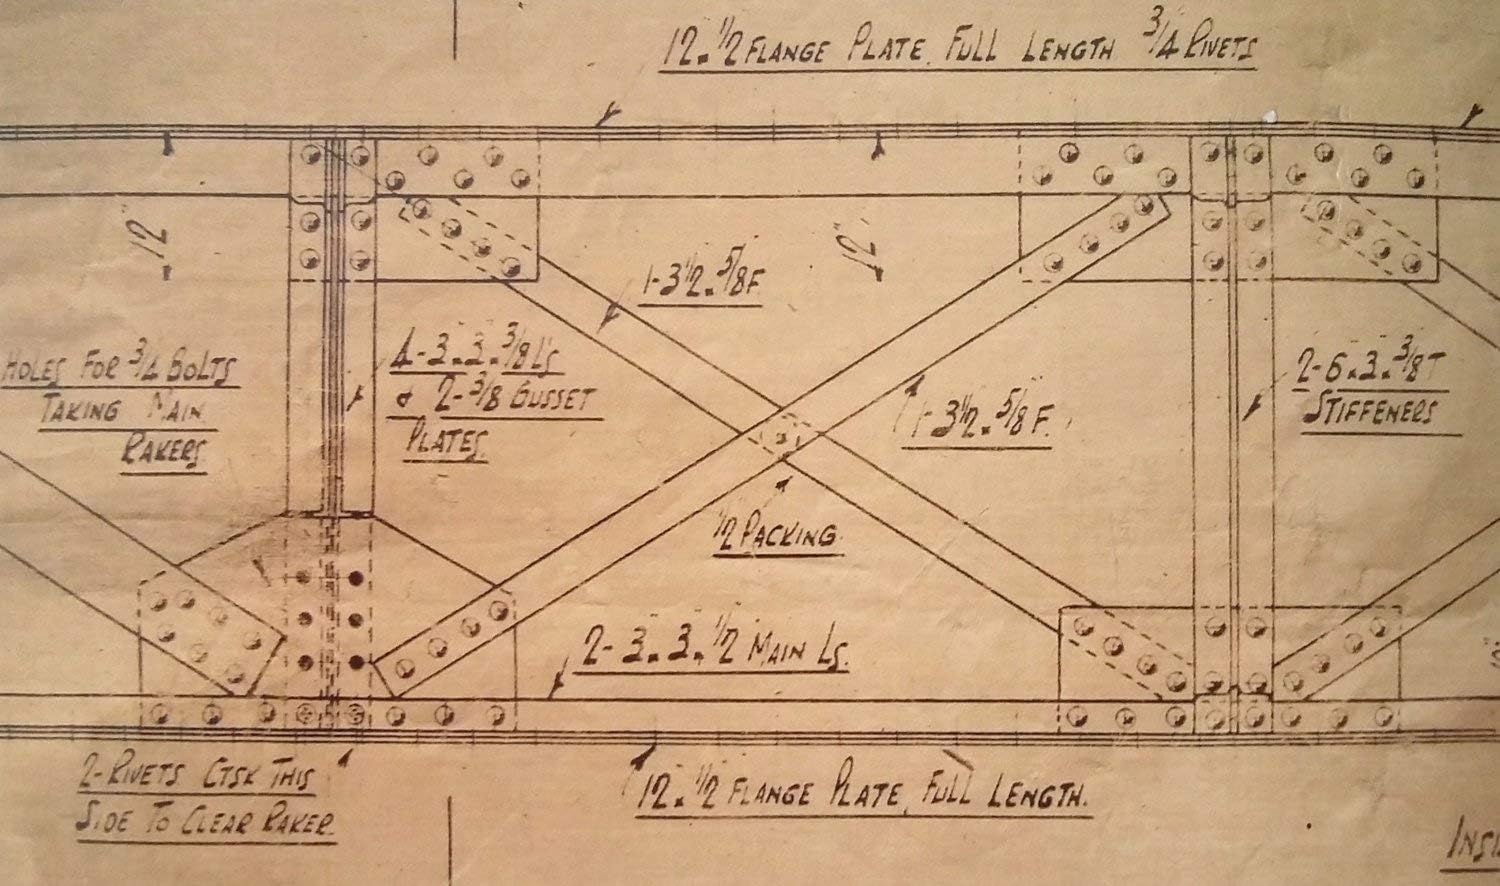 12"×1/2" FLANGE PLATE FULL LENGTH 3/4 RIVETS
12"
12"
1-3 1/2"×5/8"F.
HOLES FOR 3/4 BOLTS
TAKING MAIN
RAKERS
4-3"×3"×3/8"L's
& 2-3/8 GUSSET
PLATES.
1-3 1/2"×5/8"F.
2-6"×3"×3/8"T
STIFFENERS
1/2 PACKING.
2-3"×3"×1/2" MAIN Ls.
2-RIVETS CTSK THIS
SIDE TO CLEAR RAKER.
12"×1/2" FLANGE PLATE FULL LENGTH.